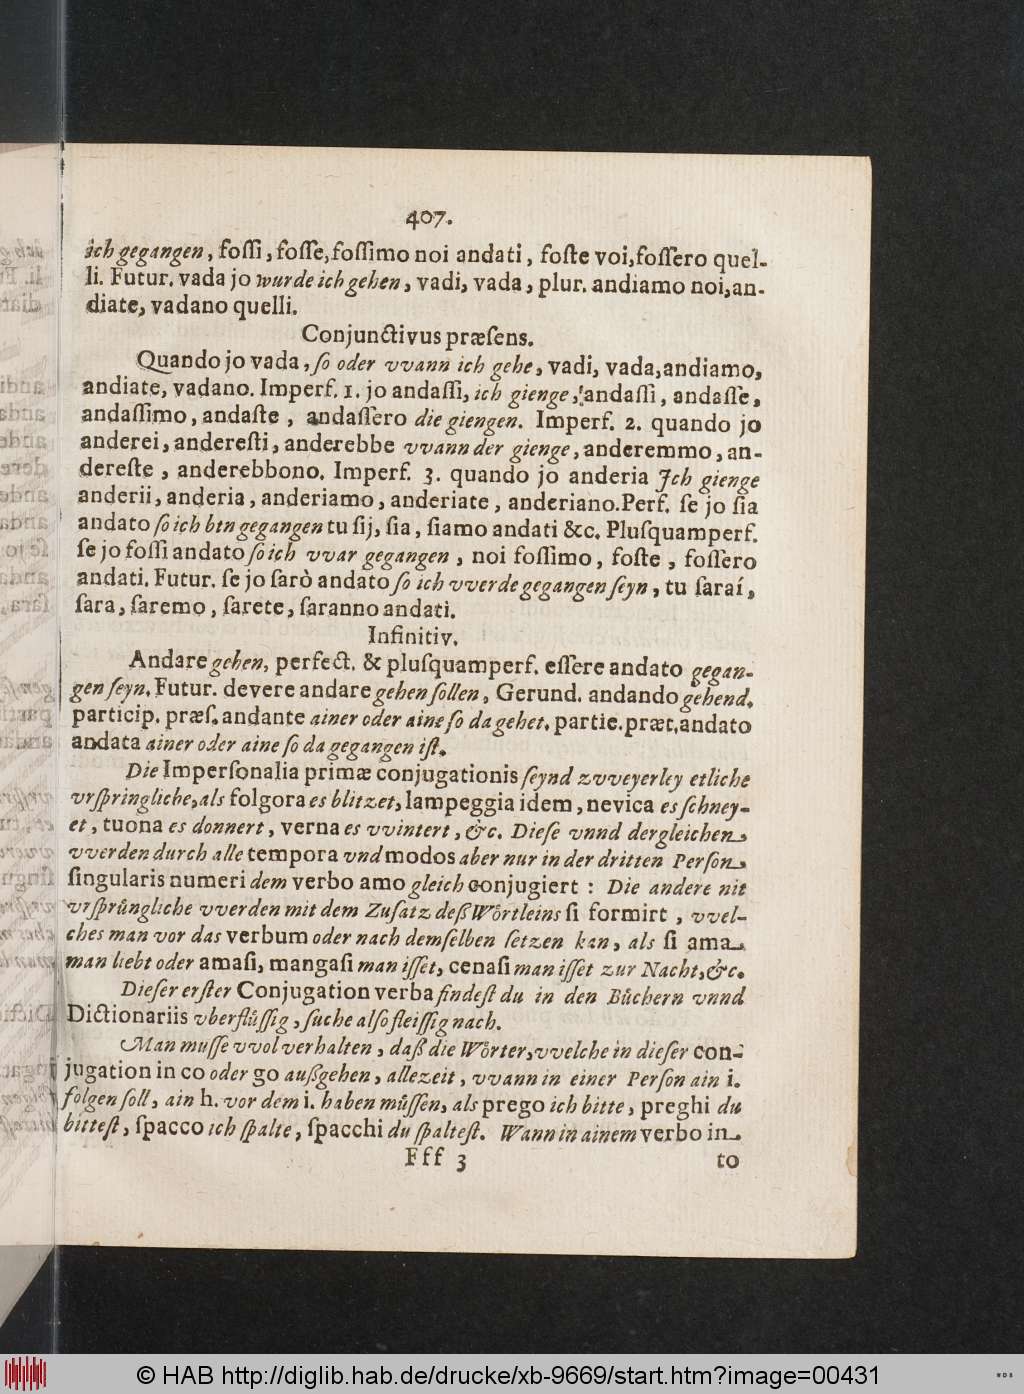 407.
ich gegangen, foſſi, foſſe, foſſimo noi andati, foſte voi, foſſero quel-
li. Futur. vada jo wurde ich gehen, vadi, vada, plur. andiamo noi, an-
diate, vadano quelli.
Conjunctivus præſens.
Quando jo vada, ſo oder vvann ich gehe, vadi, vada, andiamo,
andiate, vadano. Imperf. 1. jo andaſſi, ich gienge, andaſſi, andaſſe,
andaſſimo, andaſte, andaſſero die giengen. Imperf. 2. quando jo
anderei, andereſti, anderebbe vvann der gienge, anderemmo, an-
dereſte, anderebbono. Imperf. 3. quando jo anderia Jch gienge
anderii, anderia, anderiamo, anderiate, anderiano. Perf. ſe jo ſia
andato ſo ich btn gegangen tu ſij, ſia, ſiamo andati &c. Pluſquamperf.
ſe jo foſſi andato ſo ich vvar gegangen, noi foſſimo, foſte, foſſero
andati. Futur. ſe jo ſarò andato ſo ich vverde gegangen ſeyn, tu ſaraí,
ſara, ſaremo, ſarete, ſaranno andati.
Infinitiv.
Andare gehen, perfect. & pluſquamperf. eſſere andato gegan-
gen ſeyn. Futur. devere andare gehen ſollen, Gerund. andando gehend.
particip. præſ. andante ainer oder aine ſo da gehet. partie. præt. andato
andata ainer oder aine ſo da gegangen iſt.
Die Imperſonalia primæ conjugationis ſeynd zvveyerley etliche
vrſpringliche, als folgora es blitzet, lampeggia idem, nevica es ſchney-
et, tuona es donnert, verna es vvintert, &c. Dieſe vnnd dergleichen
vverden durch alle tempora vnd modos aber nur in der dritten Perſon
ſingularis numeri dem verbo amo gleich conjugiert: Die andere nit
vrſprůngliche vverden mit dem Zuſatz deß Wörtleins ſi formirt, vvel-
ches man vor das verbum oder nach demſelben ſetzen kan, als ſi ama
man liebt oder amaſi, mangaſi man iſſet, cenaſi man iſſet zur Nacht, &c.
Dieſer erſter Conjugation verba findeſt du in den Bůchern vnnd
Dictionariis vberflůſſig, ſuche alſo fleiſſig nach.
Man muſſe vvol verhalten, daß die Wörter, vvelche in dieſer con-
jugation in co oder go außgehen, allezeit, vvann in einer Perſon ain i.
folgen ſoll, ain h. vor dem i. haben můſſen, als prego ich bitte, preghi du
bitteſt, ſpacco ich ſpalte, ſpacchi du ſpalteſt. Wann in ainem verbo in-
Fff 3 to
© HAB http://diglib.hab.de/drucke/xb-9669/start.htm?image=00431